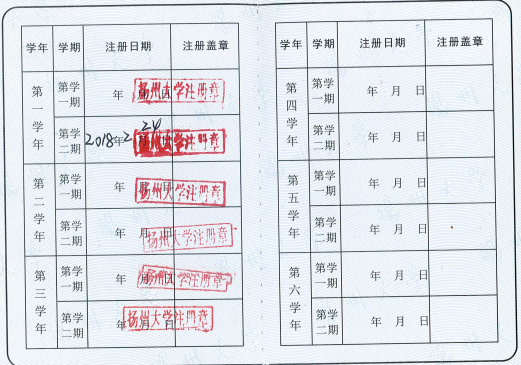 学年 学期 注册日期 注册盖章
第一学年 第学一期 年 月 日 扬州大学注册章
第学二期 2018年2月24日 扬州大学注册章
第二学年 第学一期 年 月 日 扬州大学注册章
第学二期 年 月 日 扬州大学注册章
第三学年 第学一期 年 月 日 扬州大学注册章
第学二期 年 月 日 扬州大学注册章
学年 学期 注册日期 注册盖章
第四学年 第学一期 年 月 日
第学二期 年 月 日
第五学年 第学一期 年 月 日
第学二期 年 月 日
第六学年 第学一期 年 月 日
第学二期 年 月 日